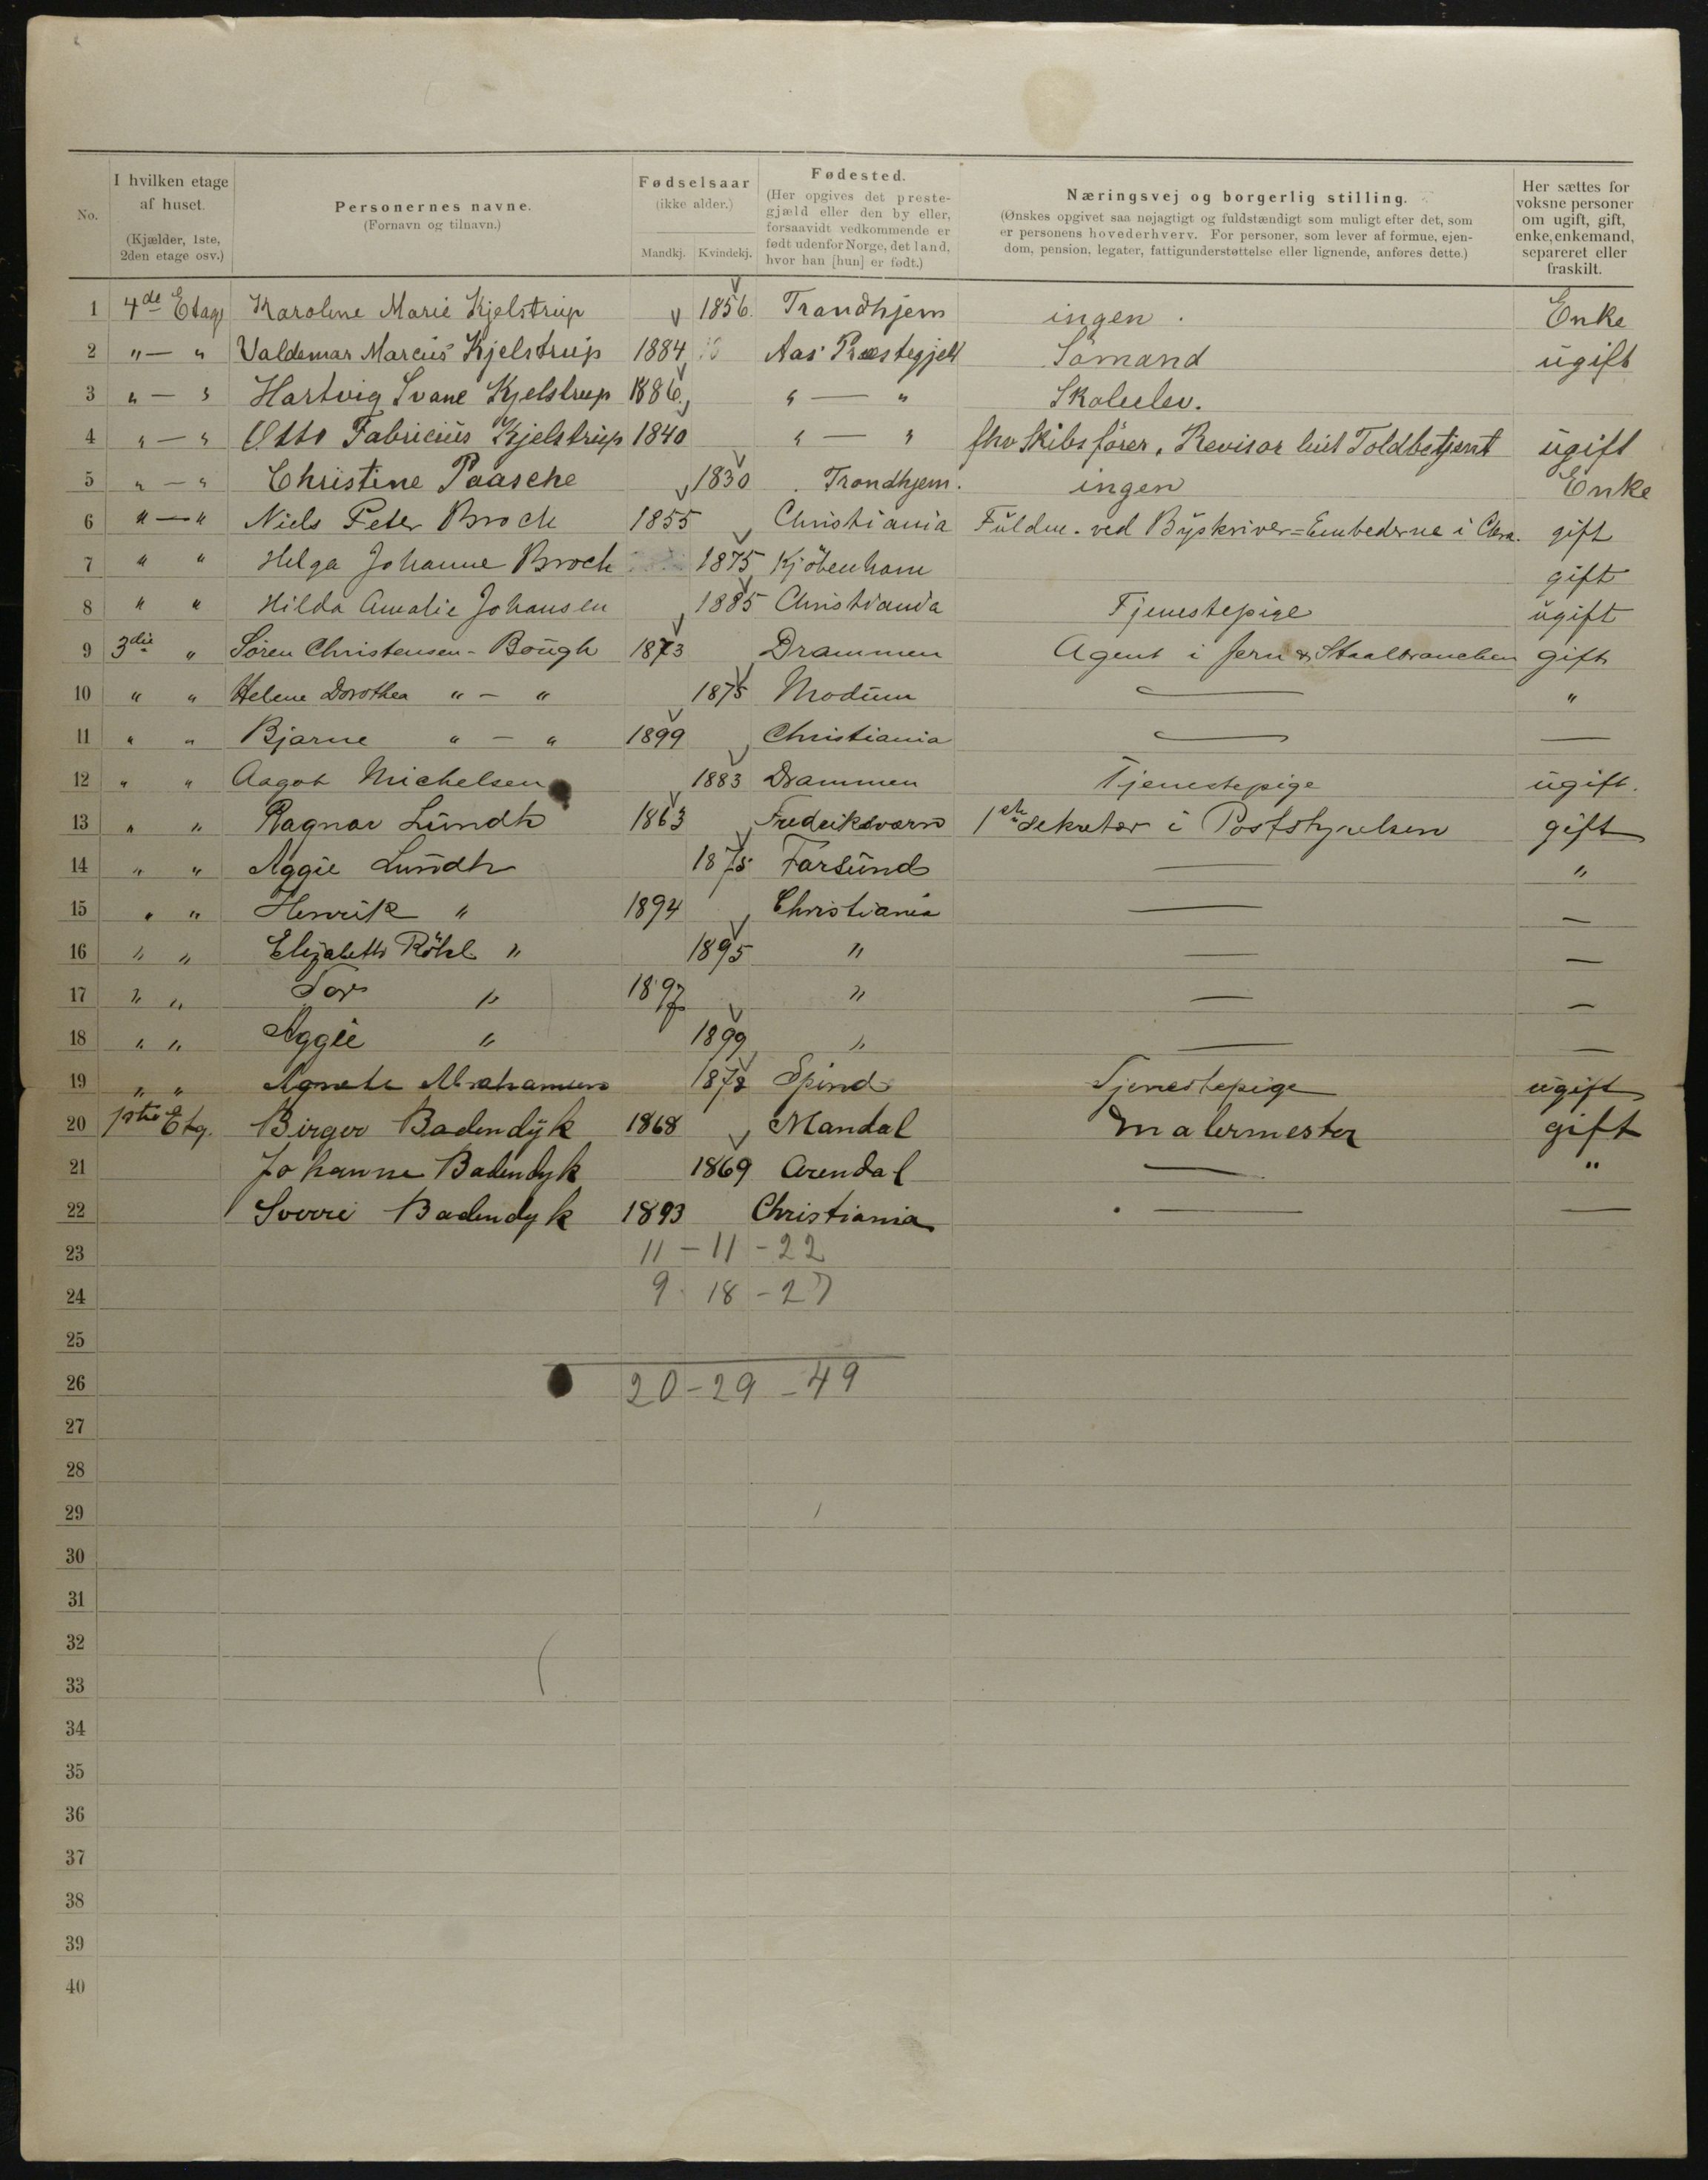 No.
I hvilken etage af huset. (Kjælder, 1ste, 2den etage osv.)
Personernes navne. (Fornavn og tilnavn.)
Fødselsaar (ikke alder.) Mandkj. Kvindekj.
Fødested. (Her opgives det prestegjæld eller den by eller, forsaavidt vedkommende er født udenfor Norge, det land, hvor han [hun] er født.)
Næringsvej og borgerlig stilling. (Ønskes opgivet saa nøjagtigt og fuldstændigt som muligt efter det, som er personens hovederhverv. For personer, som lever af formue, ejendom, pension, legater, fattigunderstøttelse eller lignende, anføres dette.)
Her sættes for voksne personer om ugift, gift, enke, enkemand, separeret eller fraskilt.
1 4de Etage Karoline Marie Kjelstrup 1856. Trondhjem ingen. Enke
2 " — " Valdemar Marcus Kjelstrup 1884 Aas Præstegjeld Sömand ugift
3 " — " Hartvig Svane Kjelstrup 1886. " — " Skoleelev.
4 " — " Otto Fabricius Kjelstrup 1840 " — " fhv Skibsförer, Revisor hist Toldbetjent ugift
5 " — " Christine Paasche 1830 Trondhjem. ingen Enke
6 " — " Niels Peter Broch 1855 Christiania Fuldm. ved Byskriver=Embederne i Chra. gift
7 " " Helga Johanne Broch 1875 Kjöbenhavn gift
8 " " Hilda Amalie Johansen 1885 Christiania Tjenestepige ugift
9 3die " Sören Christensen-Bough 1873 Drammen Agent i Jern & Staalbranchen gift
10 " " Helene Dorothea " — " 1875 Modum — "
11 " " Bjarne " — " 1899 Christiania — —
12 " " Aagot Michelsen 1883 Drammen Tjenestepige ugift.
13 " " Ragnar Lundh 1863 Fredriksværn 1ste Sekretær i Poststyrelsen gift
14 " " Aggie Lundh 1875 Farsund — "
15 " " Henrik " 1894 Christiania — —
16 " " Elizabeth Röhl " 1895 " — —
17 " " Tor " 1897 " — —
18 " " Aggie " 1899 " — —
19 " " Agnete Abrahamsen 1878 Spind Tjenestepige ugift
20 1ste Etg. Birger Badendÿk 1868 Mandal Malermester gift
21 Johanne Badendyk 1869 Arendal — "
22 Sverre Badendyk 1893 Christiania — —
23 11 — 11 — 22
24 9. 18 — 27
25
26 20 — 29 — 49
27
28
29
30
31
32
33
34
35
36
37
38
39
40